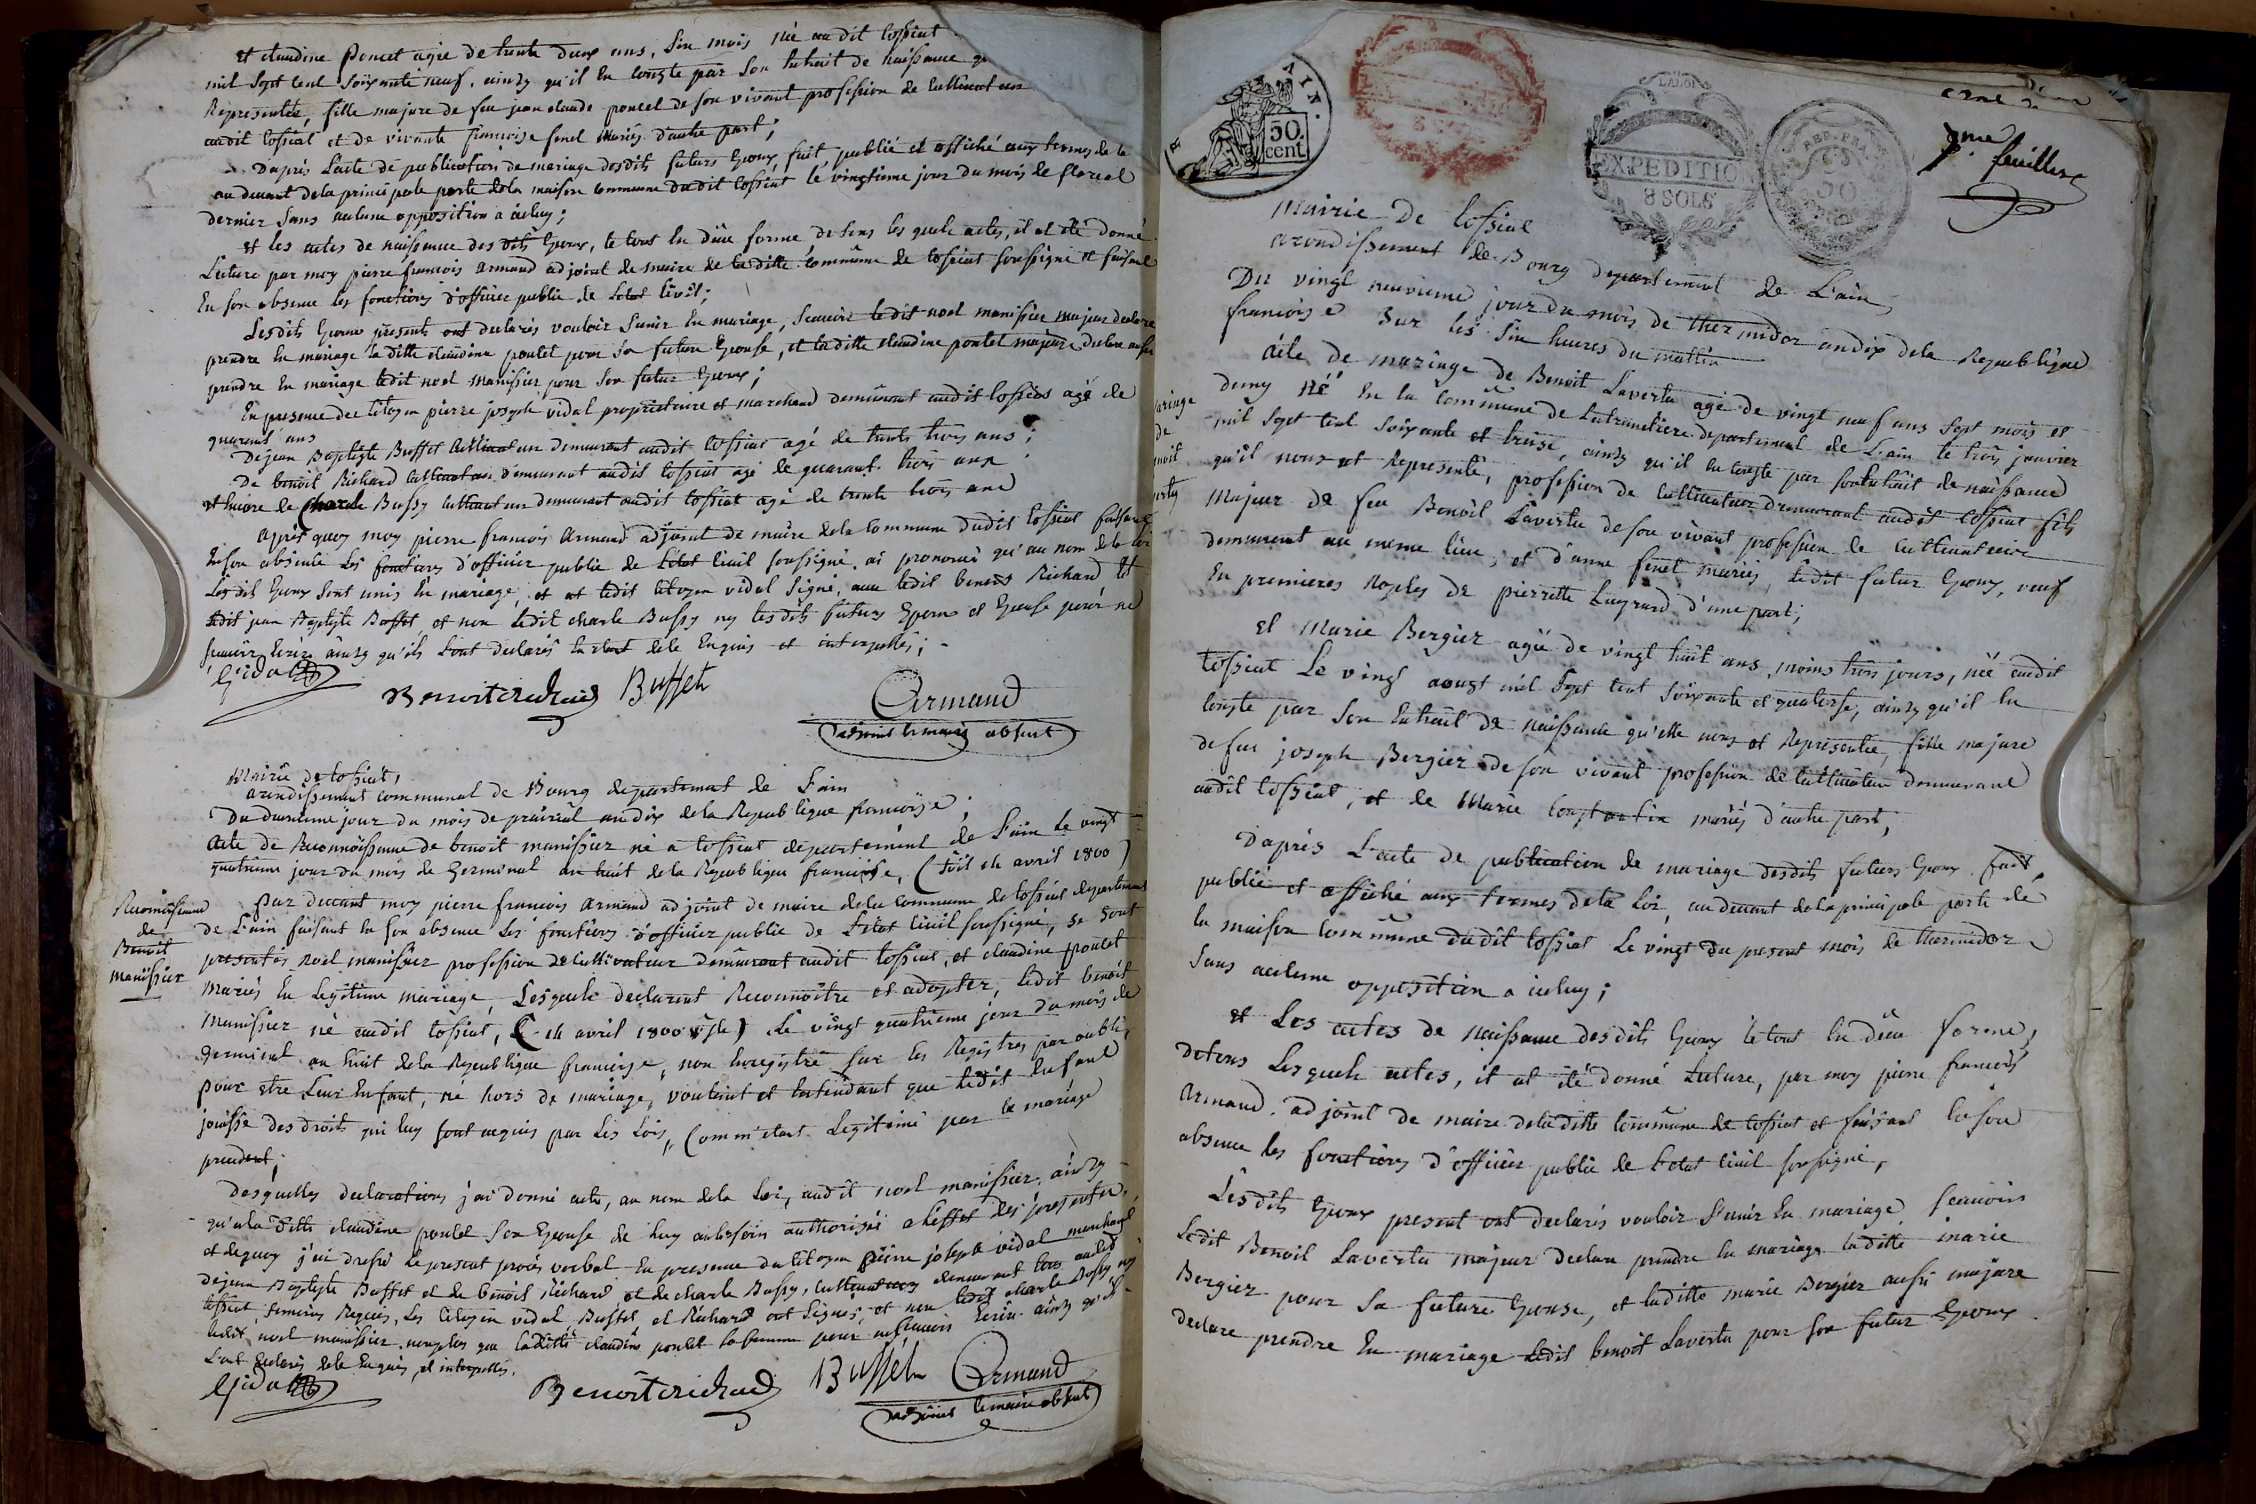 et claudine Poncet agée de trente deux ans, six mois née audit tossiat
mil sept cent soixante neuf, ainsy qu'il en conste par son extrait de naissance
Representée, fille majure de feu jean claude poncet de son vivant profession de cultivateur
audit tossiat et de vivante francoise fenet mariés d'autre part;
D'après L'acte de publication de mariage desdits futurs Epoux, fait, publié et affiché aux termes de la
au devant de la principale porte de la maison commune dudit tossiat le vingtieme jour du mois de floreal
dernier sans aulcune opposition a iceluy;
et les actes de naissance des dits Epoux, le tout En düe forme de tous les quels actes, il at été donné
Lecture par moy pierre francois armand adjoint de maire de la ditte commune de tossiat soussigné et faisant
En son absence les fonctions d'officier public de l'etat Civil;
Lesdits Epoux presents ont declarés vouloir s'unir En mariage, scauoir ledit noel manissier majeur declare
prendre En mariage la ditte claudine poncet pour sa future Epouse, et laditte claudine poncet majeure declare aussi
prendre En mariage ledit noel manissier pour son futur Epoux;
En presence de Citoyen pierre joseph vidal proprietaire et marchand demeurant audit tossiat agé de
quarant ans
De jean Baptiste Buffet Cultivateur demeurant audit tossiat agé de trente trois ans;
De benoit Richard cultivateur demeurant audit tossiat agé de quarant trois ans
et encore de Charle Bussy cultivateur demeurant audit tossiat agé de trente trois ans
Après quoy moy pierre francois Armand adjoint de maire de la commune dudit tossiat faisant
En son absence les fonctions d'officier public de L'état Civil soussigné, ai prononcé qu'au nom de la loi
Lesdits Epoux sont unis En mariage, et at ledit Citoyen vidal signé, avec ledit benoit Richard et
ledit jean Baptiste Buffet et non ledit charle Bussy ny lesdits futurs Epoux et Epouse pour ne
scauoir Ecrire ainsy qu'ils L'ont declarés En etant de ce Enquis et interpellés;
Vidal
Benoit richard Buffet
Armand
adjoint le maire absent
Mairie de tossiat,
arondissement communal de Bourg departement de L'ain
Du deuxieme jour du mois de prairial an dix de la Republique francoise;
Acte de Reconnoissance de benoit manissier né a tossiat departement de L'ain le vingt
quatrieme jour du mois de Germinal an huit de la Republique francoise, (soit 14 avril 1800)
Reconnoissance
de
Benoit
manissier
Par devant moy pierre francois armand adjoint de maire de la commune de tossiat departement
de L'ain faisant En son absence Les fonctions d'officier public de L'etat Civil soussigné, se sont
presentés noel manissier profession de cultivateur demeurant audit tossiat, et claudine poncet
mariés En Legitime mariage, Lesquels declarent Reconnoître et adopter, ledit benoit
manissier né audit tossiat, (14 avril 1800 vst.) Le vingt quatrieme jour du mois de
Germinal an huit de la Republique francoise, non Enregistré sur les Registres par oubli,
pour etre Leur Enfant, né hors de mariage, voulant et Entendant que ledit Enfant
jouisse des droits qui luy sont acquis par Les Lois, Comm'etant Legitimé par le mariage
precedent;
Desquelles declarations j'ai donné acte, au nom de la Loi, audit noel manissier, ainsy
qu'a la ditte claudine poncet son Epouse de luy au besoin authorisée a L'effet des presentes,
et de quoy j'ai dressé le present procès verbal En presence du Citoyen pierre joseph vidal marchand
de jean Baptiste Buffet et de benoit Richard et de charle Bussy, cultivateurs demeurant tous audit
tossiat, temoins Requis, Les Citoyen vidal, Buffet, et Richard ont signés, et non ledit charle Bussy ny
ledit noel manissier, non plus que laditte claudine poncet sa femme pour ne scauoir Ecrire ainsy qu'ils
L'ont declarés de ce Enquis, et interpellés.
Vidal
Benoit richard Buffet Armand
adjoint le maire absent
50
cent
EXPEDITION
8 SOLS
REP. FRA
50
feuillet
Mairie de tossiat
arondissement de Bourg departement de L'ain
Du vingt neuvieme jour du mois de thermidor an dix de la Republique
francoise Sur les six heures du mattin
Mariage
de
Benoit
Laverty
Acte de mariage de Benoit Laverty agé de vingt neuf ans sept mois et
demy né En la Commune de Latranclière departement de L'ain le trois janvier
mil sept cent soixante et treise, ainsy qu'il En conste par son Extrait de naissance
qu'il nous at Representé, profession de Cultivateur demeurant audit tossiat fils
Majeur de feu Benoit Laverty de son vivant profession de cultivateur
demeurant au meme lieu, et d'anne fenet mariés, ledit futur Epoux, veuf
En premieres noples de pierrette Luyrard d'une part;
et Marie Bergier agée de vingt huit ans, moins trois jours, née audit
tossiat Le vingt aoust mil sept cent soixante et quatorse, ainsy qu'il En
conste par son Extrait de naissance qu'elle nous at Representée, fille majure
de feu joseph Bergier de son vivant profession de Cultivateur demeurant
audit tossiat, et de Marie Constantin mariés d'autre part,
D'après L'acte de publication de mariage desdits futurs Epoux fait,
publié et affiché aux termes de la Loi, au devant de la principale porte de
la maison Commune dudit tossiat Le vingt du present mois de thermidor
sans aulcune opposition a iceluy;
et Les actes de naissance desdits Epoux le tout En düe forme,
de tous Lesquels actes, il at été donné Lecture, par moy pierre francois
Armand adjoint de maire de laditte Commune de tossiat et faisant En son
absence les fonctions d'officier public de L'etat Civil soussigné,
Lesdits Epoux present ont declarés vouloir s'unir En mariage scauoir
Ledit Benoit Laverty majeur declare prendre En mariage laditte marie
Bergier pour sa future Epouse, et laditte marie Bergier aussi majure
declare prendre En mariage Ledit benoit Laverty pour son futur Epoux